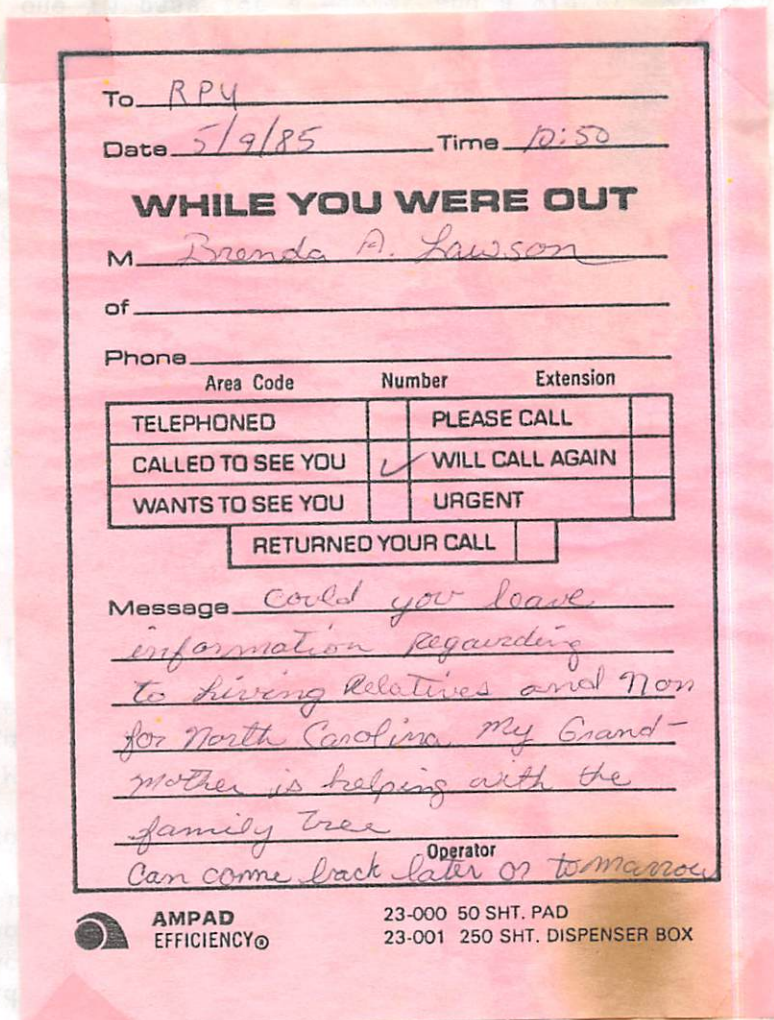 To RPY
Date 5/9/85 Time 10:50
WHILE YOU WERE OUT
M Brenda A. Lawson
of
Phone
Area Code Number Extension
TELEPHONED PLEASE CALL
CALLED TO SEE YOU ✓ WILL CALL AGAIN
WANTS TO SEE YOU URGENT
RETURNED YOUR CALL
Message Could you leave
information Regairding
to living Relatives and Non
for North Carolina. My Grand-
mother is helping with the
family Tree
Operator
Can come back later or tomarrow
AMPAD 23-000 50 SHT. PAD
EFFICIENCY® 23-001 250 SHT. DISPENSER BOX